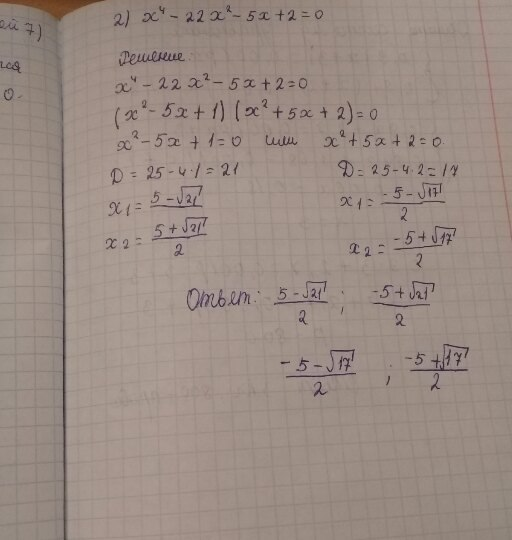 ей 7)
тся
0.
2) x⁴ - 22x² - 5x + 2 = 0
Решение:
x⁴ - 22x² - 5x + 2 = 0
(x² - 5x + 1) (x² + 5x + 2) = 0
x² - 5x + 1 = 0 или x² + 5x + 2 = 0
D = 25 - 4·1 = 21 D = 25 - 4·2 = 17
x₁ = (5 - √21)/2 x₁ = (-5 - √17)/2
x₂ = (5 + √21)/2 x₂ = (-5 + √17)/2
Ответ: (5 - √21)/2 ; (-5 + √21)/2
(-5 - √17)/2 ; (-5 + √17)/2